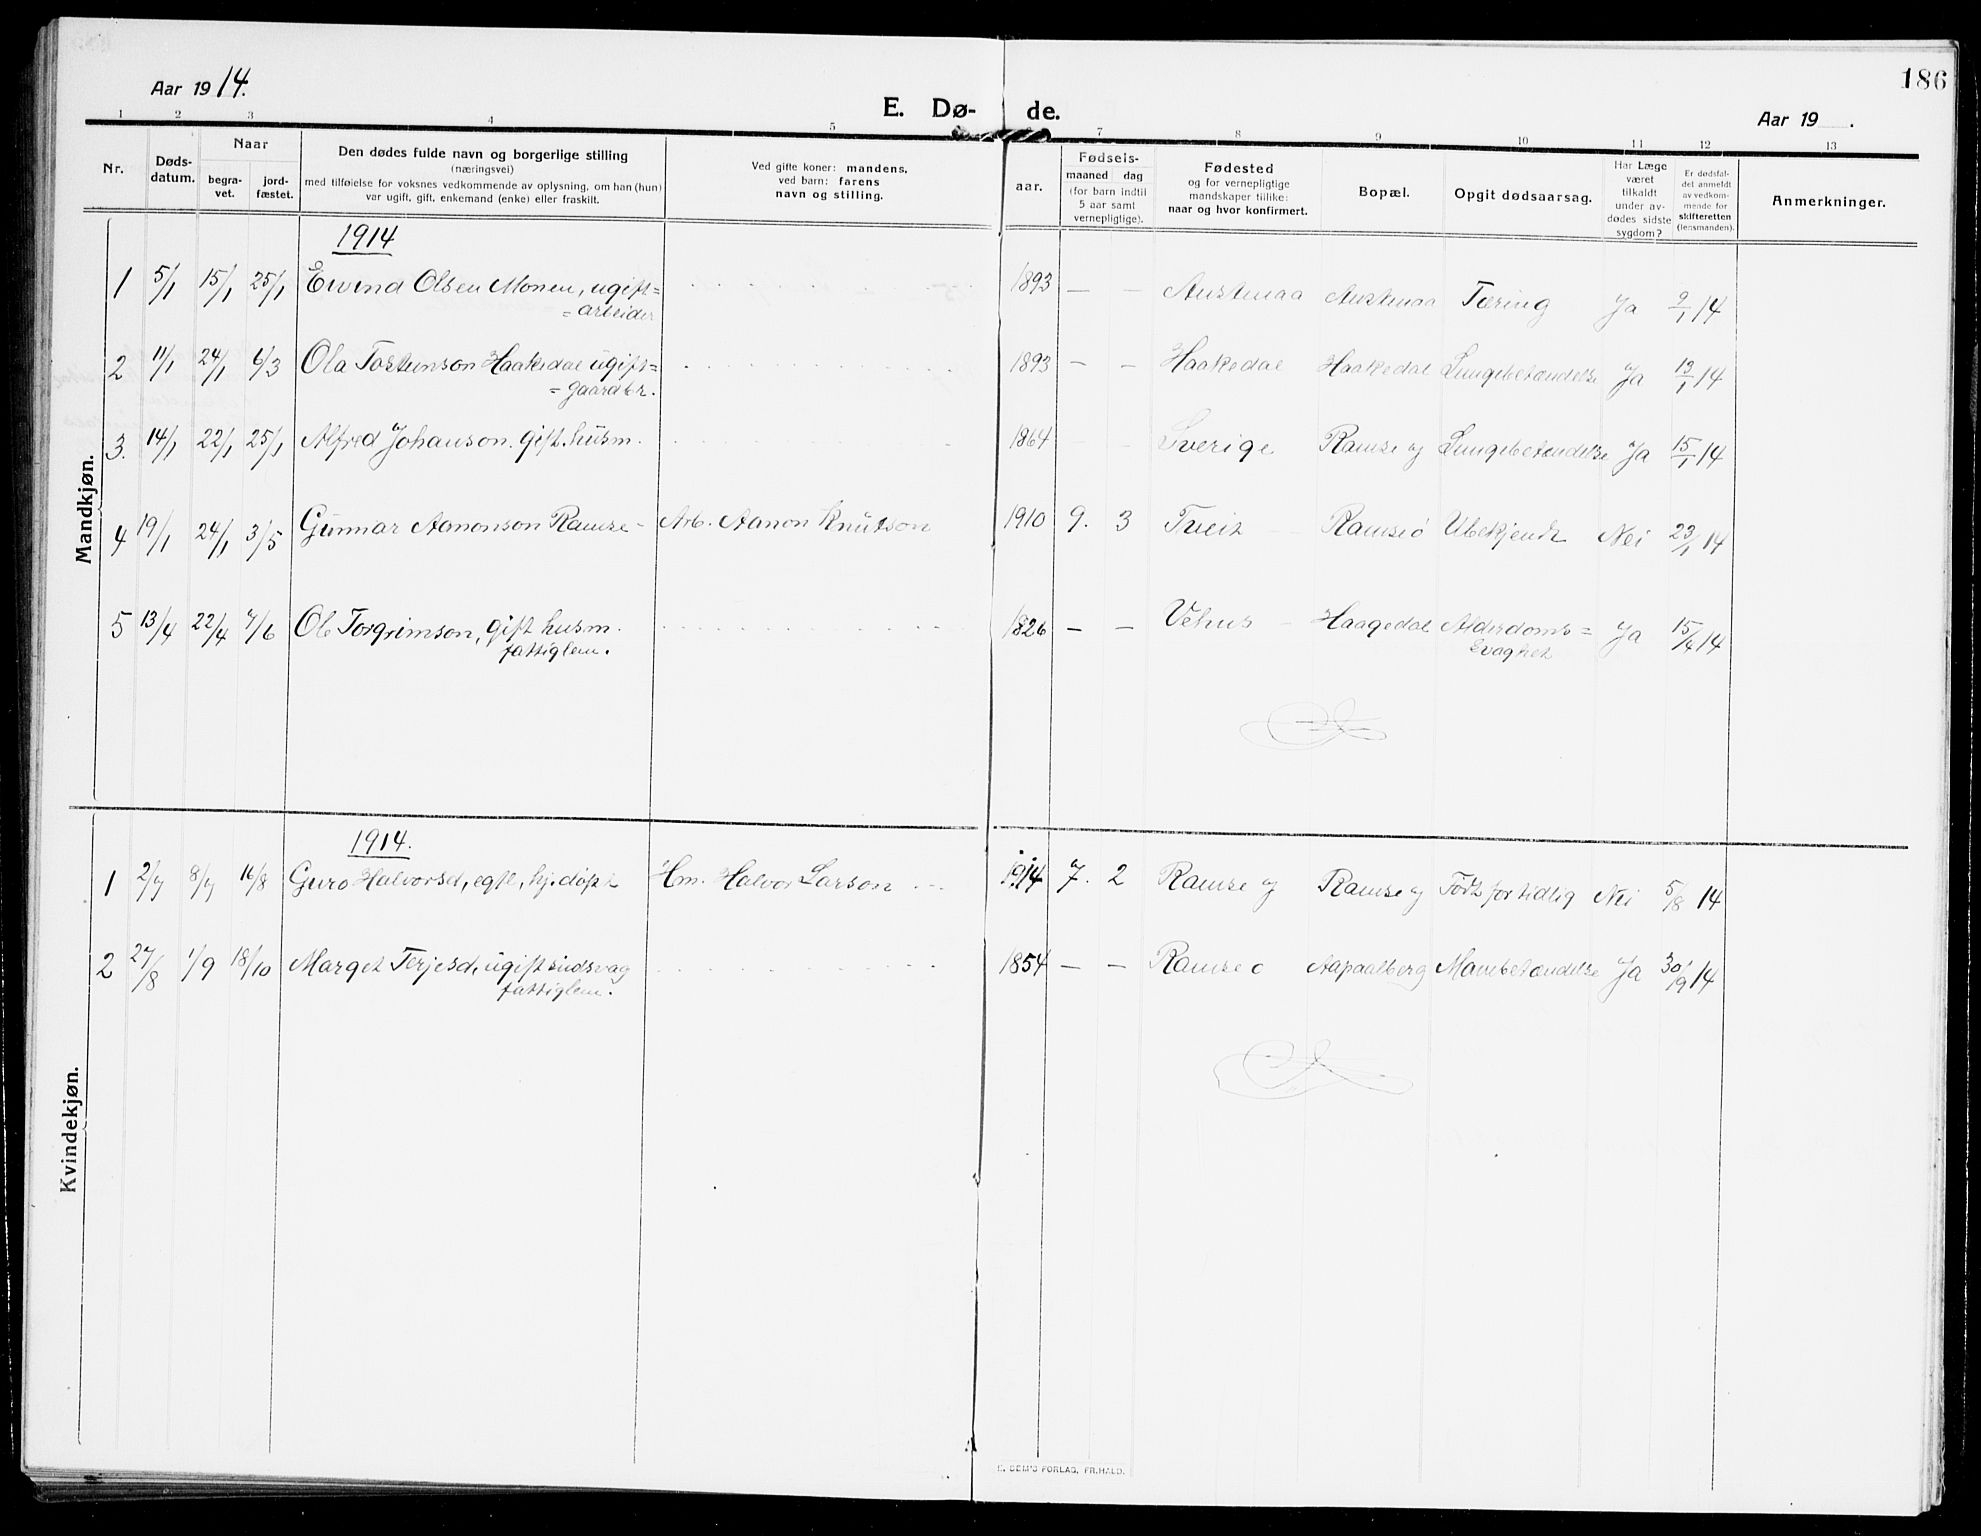 186
Aar 1914.
E. Dø- de.
Aar 19 .
1 2 3 4 5 7 8 9 10 11 12 13
Nr.
Døds-
datum.
Naar
begra-
vet.
jord-
fæstet.
Den dødes fulde navn og borgerlige stilling
(næringsvei)
med tilføielse for voksnes vedkommende av oplysning, om han (hun)
var ugift, gift, enkemand (enke) eller fraskilt.
Ved gifte koner: mandens,
ved barn: farens
navn og stilling.
aar.
Fødsels-
maaned dag
(for barn indtil
5 aar samt
vernepligtige).
Fødested
og for vernepligtige
mandskaper tillike:
naar og hvor konfirmert.
Bopæl.
Opgit dødsaarsag.
Har Læge
været
tilkaldt
under av-
dødes sidste
sygdom?
Er dødsfal-
det anmeldt
av vedkom-
mende for
skifteretten
(lensmanden).
Anmerkninger.
Mandkjøn.
1914
1 5/1 15/1 25/1 Eivind Olsen Monen, ugift= 1893 — — Austenaa Austenaa Tæring Ja 9/1 14
= arbeider
2 11/1 24/1 6/3 Ola Tostenson Haakedal ugift= 1893 — — Haakedal Haakedal Lungebetændelse Ja 13/1 14
= gaardbr.
3. 14/1 22/1 25/1 Alfred Johanson. gift. husm. 1864 — — Sverige Ramse og Lungebetændelse Ja 15/1 14
4 19/1 24/1 3/5 Gunnar Aanonson Ramse - Arb. Aanon Knutson 1910 9. 3 Tveit Ramseø Ubekjendt Nei 23/1 14
5 13/4 22/4 7/6 Ol. Torgrimson, gift husm. 1826 — — Vehus Haagedal Alderdoms= Ja 15/4 14
fattiglem. svaghet
Kvindekjøn.
1914.
1 2/7 8/7 16/8 Guro Halvorsd, egtf., hj. døpt Hm. Halvor Larson 1914 7. 2 Ramse og Ramse og Født for tidlig Nei 5/8 14
2 27/8 1/9 18/10 Marget Terjesd, ugift sindsvag 1854 — — Ramse o Aapaalberg Mavebetændelse Ja 14
fattiglem.
FORLAG, FR.HALD.